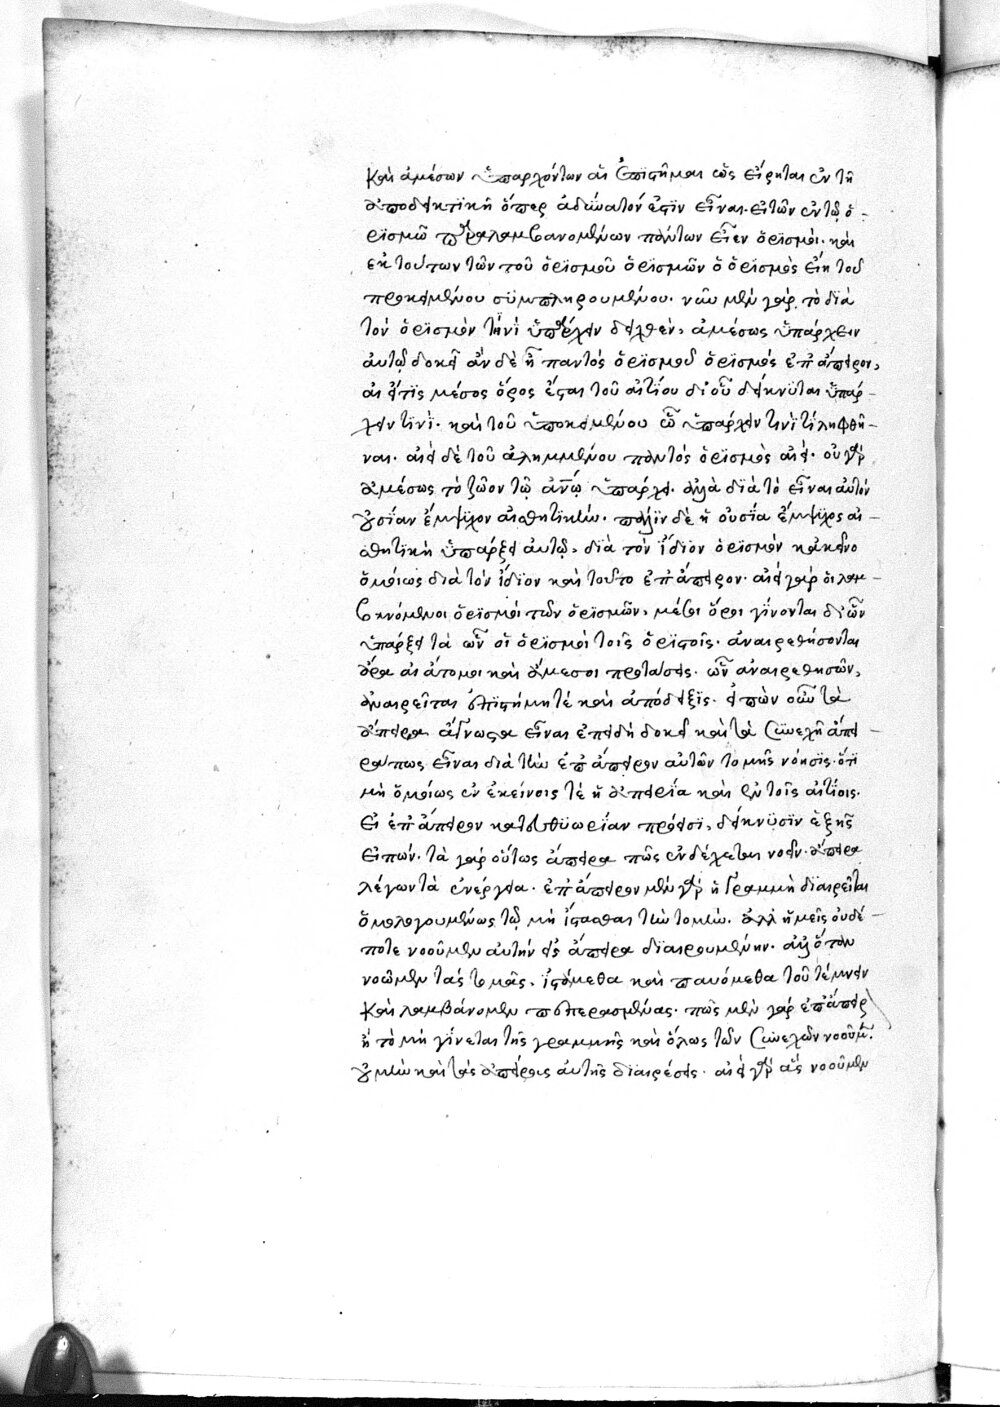 καὶ ἀμέσων ὑπαρχόντων αἱ ἐπιστῆμαι ὡς εἴρηται ἐν τῆ
ἀποδεικτικῆ ὅπερ ἀδύνατόν ἐστιν εἶναι. εἰ τῶν ἐν τῶ ὁ-
ρισμῶ παραλαμβανομένων πάντων εἶεν ὁρισμοί. καὶ
ἐκ τούτων τῶν τοῦ ὁρισμοῦ ὁρισμῶν ὁ ὁρισμὸς εἴη τοῦ
προκειμένου συμπληρουμένου. νῦν μὲν γάρ, τὸ διὰ
τὸν ὁρισμόν τινι ὑπάρχειν δειχθὲν, ἀμέσως ὑπάρχειν
αὐτῶ δοκεῖ ἂν δὲ ἦ παντὸς ὁρισμοῦ ὁρισμὸς ἐπ' ἄπειρον,
ἀεί τις μέσος ὅρος ἔσται τοῦ αἰτίου δι' οὗ δείκνυται ὑπάρ-
χειν τινί. καὶ τοῦ ὑποκειμένου ὧ ὑπάρχειν τινί τι ληφθῆ-
ναι. ἀεὶ δὲ τοῦ λημμένου παντὸς ὁρισμὸς ἀεί. οὐ γὰρ
ἀμέσως τὸ ζῶον τῶ ἀνω ὑπάρχει. ἀλλὰ διὰ τὸ εἶναι αὐτὸν
οὐσίαν ἔμψυχον αἰσθητικήν. πάλιν δὲ ἡ οὐσία ἔμψυχος αἰ-
σθητικὴ ὑπάρξει αὐτῶ, διὰ τὸν ἴδιον ὁρισμὸν κἀκεῖνο
ὁμοίως διὰ τὸν ἴδιον καὶ τοῦτο ἐπ' ἄπειρον. ἀεὶ γὰρ οἱ λαμ-
βανόμενοι ὁρισμοὶ τῶν ὁρισμῶν, μέσοι ὅροι γίνονται δι' ὧν
ὑπάρξει τὰ ὧν οἱ ὁρισμοὶ τοῖς ὁριστοῖς. ἀναιρεθήσονται
ἄρα αἱ ἄτομοι καὶ ἄμεσοι προτάσεις. ὧν ἀναιρεθησῶν,
ἀναιρεῖται ἐπιστήμη τέ καὶ ἀπόδειξις. εἰπὼν οὖν τὰ
ἄπειρα ἄγνωστα εἶναι ἐπειδὴ δοκεῖ καὶ τὰ συνεχῆ ἄπει-
ρά πως εἶναι διὰ τὴν ἐπ' ἄπειρον αὐτῶν τομῆς νόησις. ὅτι
μὴ ὁμοίως ἐν ἐκείνοις τὲ ἡ ἀπειρία καὶ ἐν τοῖς αἰτίοις.
εἰ ἐπ' ἄπειρον κατ' εὐθυωρίαν πρόεισι, δείκνυσιν ἑξῆς
εἰπών. τὰ γὰρ οὕτως ἄπειρα πῶς ἐνδέχεται νοεῖν. ἄπειρα
λέγων τὰ ἐνεργεία. ἐπ' ἄπειρον μὲν γὰρ ἡ γραμμὴ διαιρεῖται
ὁμολογουμένως τῶ μὴ ἵστασθαι τὴν τομήν. ἀλλ' ἡμεῖς οὐδέ-
ποτε νοοῦμεν αὐτὴν εἰς ἄπειρα διαιρουμένην. ἀλλ' ὅταν
νοῶμεν τὰς τομὰς, ἱστάμεθα καὶ παυόμεθα τοῦ τέμνειν
καὶ λαμβάνομεν πεπερασμένας. πῶς μὲν γὰρ ἐπ' ἄπειρ
ἡ τομὴ γίνεται τῆς γραμμῆς καὶ ὅλως τῶν συνεχῶν νοοῦμ.
οὐ μὴν καὶ τὰς ἀπείρους αὐτῆς διαιρέσεις. ἀεὶ γὰρ ἃς νοοῦμεν